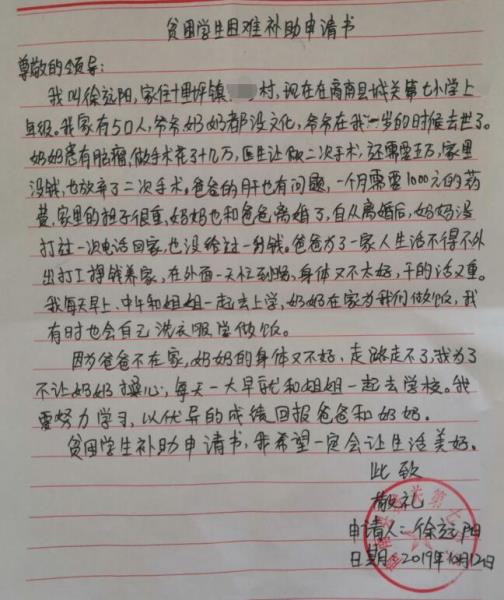 贫困学生困难补助申请书
尊敬的领导：
我叫徐远阳，家住十里坪镇 村，现在在商南县城关第七小学上
年级。我家有50人，爷爷奶奶都没文化，爷爷在我一岁的时候去世了。
奶奶患有脑瘤，做手术花了十几万，医生让做二次手术，还需要五万，家里
没钱，也放弃了二次手术。爸爸的肝也有问题，一个月需要1000元的药
费，家里的担子很重，妈妈也和爸爸离婚了，自从离婚后，妈妈没
打过一次电话回家，也没给过一分钱。爸爸为了一家人生活不得不外
出打工挣钱养家，在外面一天忙到晚，身体又不太好，干的活又重。
我每天早上、中午和姐姐一起去上学，奶奶在家为我们做饭，我
有时也会自己洗衣服学做饭。
因为爸爸不在家，奶奶的身体又不好，走路走不了，我为了
不让奶奶操心，每天一大早就和姐姐一起去学校。我
要努力学习，以优异的成绩回报爸爸和奶奶。
贫困学生补助申请书，我希望一定会让生活美好。
此致
敬礼
申请人：徐远阳
日期：2019年10月12日